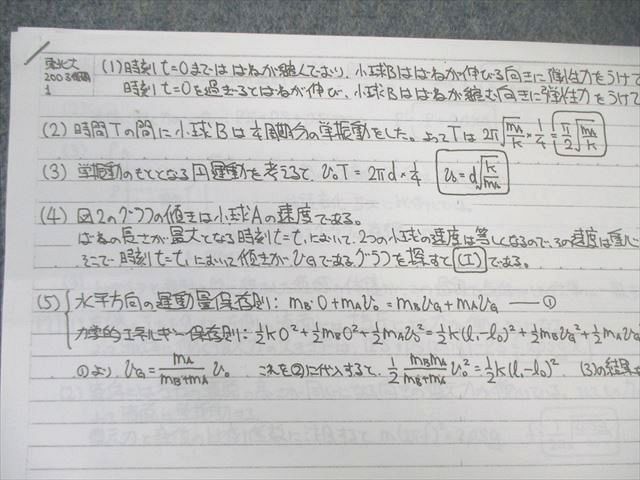 東北大
2003前期
1
(1) 時刻 t=0まではばねが縮んでおり、小球Bはばねが伸びる向きに弾性力をうけて
時刻 t=0を過ぎるとばねが伸び、小球Bはばねが縮む向きに弾性力をうけて
(2) 時間Tの間に小球Bは1/4周期分の単振動をした。よってTは 2π√(mA/k) × 1/4 = π/2 √(mA/k)
(3) 単振動のもととなる円運動を考えると、v₀T = 2πd × 1/4 v₀ = d√(k/mA)
(4) 図2のグラフの傾きは小球Aの速度である。
ばねの長さが最大となる時刻t=t₁において、2つの小球の速度は等しくなるので、その速度は重心
そこで時刻t=t₁において傾きがvGであるグラフを探すと(エ)である。
(5) 水平方向の運動量保存則: mB·0+mAv₀ = mBvG+mAvG ―①
力学的エネルギー保存則: 1/2k0²+1/2mB0²+1/2mAv₀² = 1/2k(l₁-l₀)²+1/2mBvG²+1/2mAv
①より vG = mA/(mB+mA) v₀ これを②に代入すると、1/2 mBmA/(mB+mA) v₀² = 1/2k(l₁-l₀)². (3)の結果